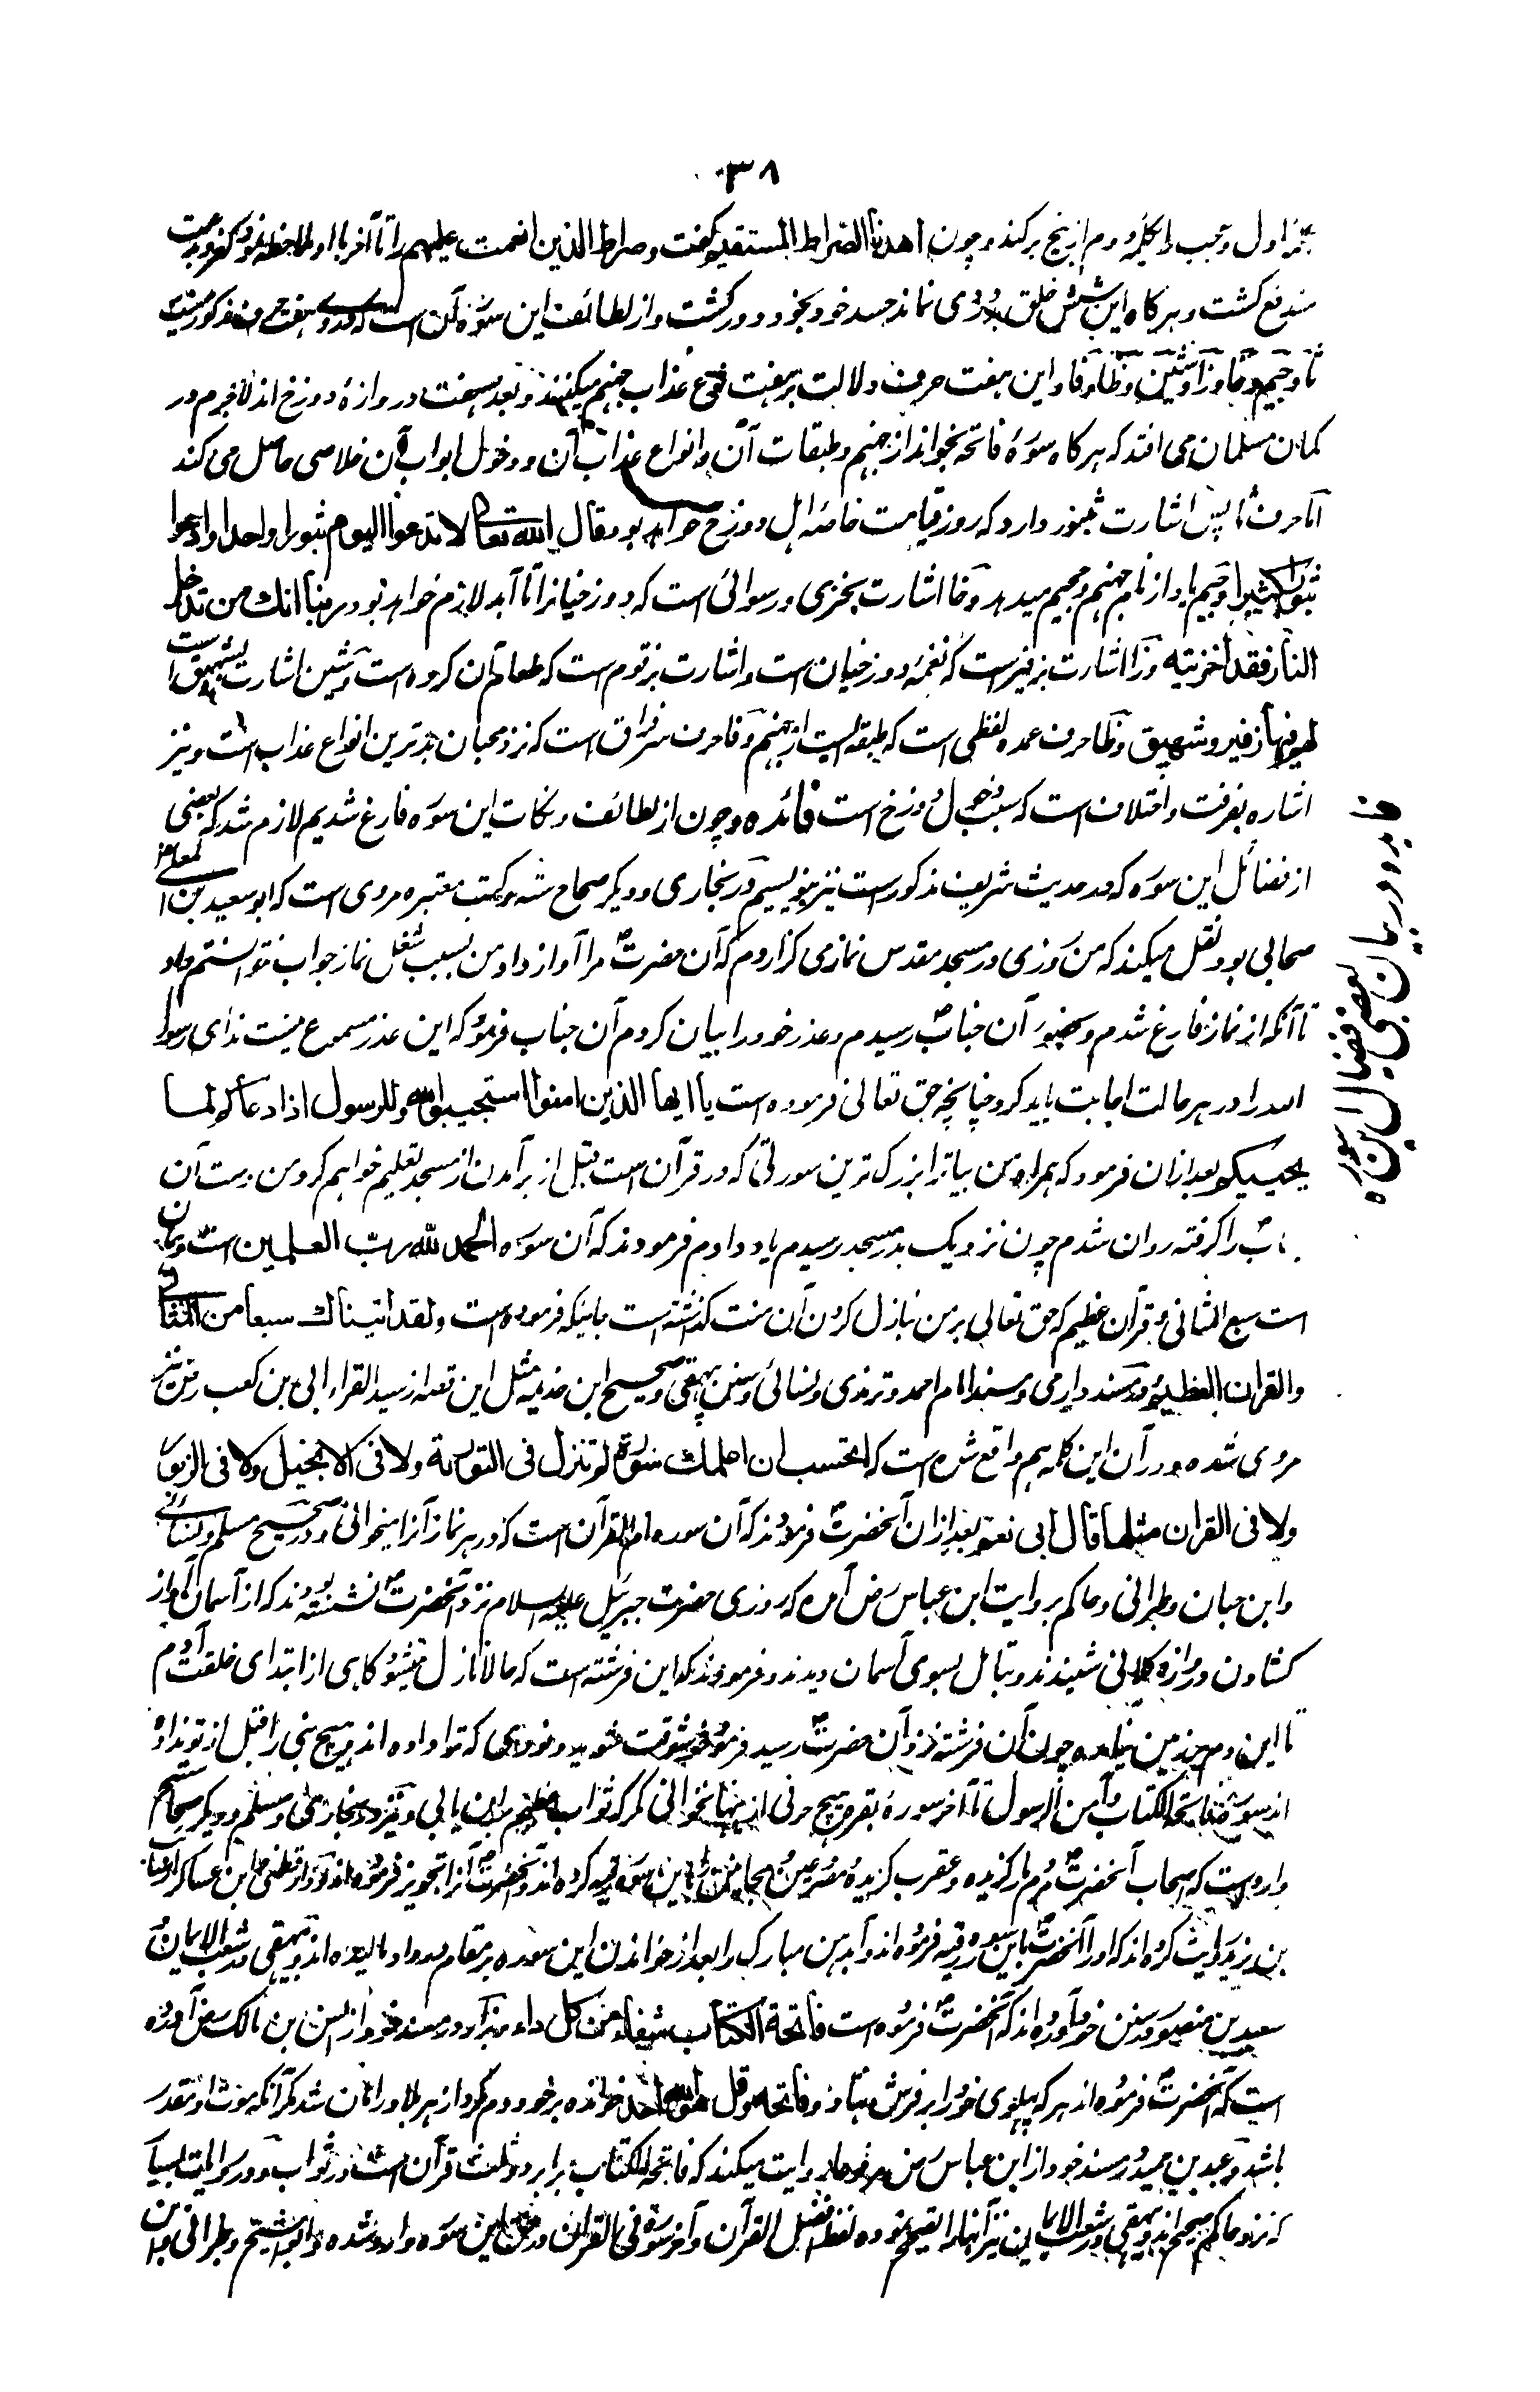 ۳۸
اول وعجب را کلمه دوم از بیخ برکند و چون اهدنا الصراط المستقیم گفت و صراط الذین انعمت علیهم را تا آخر با او ملاحظه نمود کفر و بدعت
مندفع گشت و هرگاه این شش خلق بد روی نماند حسد خود بخود دور گشت و از لطائف این سوره آن است که درو هفت حرف مذکور نیست
ثا و جیم و خا و زا و شین و ظا و فا و این هفت حرف دلالت بر هفت نوع عذاب جهنم میکنند و بعدد هفت دروازهٔ دوزخ اند لاجرم در
گمان مسلمان می افتد که هرگاه سورهٔ فاتحه بخواند از جهنم و طبقات آن و انواع عذاب آن و دخول ابواب آن خلاصی حاصل می کند
اما حرف ثا پس اشارت بثبور دارد که روز قیامت خاصه اهل دوزخ خواهد بود قال الله تعالی لا تدعوا الیوم ثبورا واحدا وادعوا
ثبورا کثیرا و جیم یاد از نام جهنم و جحیم میدهد و خا اشارت بخزی و رسوائی است که دوزخیانرا تا ابد لازم خواهد بود ربنا انک من تدخل
النار فقد اخزیته و زا اشارت بزفیر است که نغمه دوزخیان است و اشارت بزقوم است که طعام آن گروه است و شین اشارت بشهیق است
لهم فیها زفیر و شهیق و ظا حرف عمده لفظی است که طبقه ایست از جهنم و فا حرف فراق است که نزد محبان بدترین انواع عذاب است و نیز
اشاره بفرقت و اختلاف است که سبب دخول دوزخ است فائده و چون از لطائف و نکات این سوره فارغ شدیم لازم شد که بعضی
از فضائل این سوره که در حدیث شریف مذکور است نیز بنویسیم در بخاری و دیگر صحاح سته و کتب معتبره مروی است که ابو سعید بن المعلی
صحابی بود نقل میکند که من روزی در مسجد مقدس نماز می گزاردم که آن حضرتؐ مرا آواز داد من بسبب شغل نماز جواب نتوانستم داد
تا آنکه از نماز فارغ شدم و بحضور آن جنابؐ رسیدم و عذر خود را بیان کردم آن جناب فرمود که این عذر مسموع نیست ندای رسول
الله را در هر حالت اجابت باید کرد چنانچه حق تعالی فرموده است یا ایها الذین امنوا استجیبوا لله وللرسول اذا دعاکم لما
یحییکم بعد ازان فرمود که همراه من بیا ترا بزرگ ترین سورتی که در قرآن است قبل از برآمدن از مسجد تعلیم خواهم کرد من دست آن
جنابؐ را گرفته روان شدم چون نزدیک بدر مسجد رسیدم یاد دادم فرمودند که آن سوره الحمد لله رب العلمین است و همان
است سبع المثانی و قرآن عظیم که حق تعالی بر من بنازل کردن آن منت گذاشته است جائیکه فرموده است ولقد اتیناک سبعا من المثانی
والقران العظیم و در مسند دارمی و مسند امام احمد و ترمذی و نسائی و سنن بیهقی و صحیح ابن خزیمه مثل این قصه از سید القراء ابی بن کعب رض نیز
مروی شده و در آن این کلمه هم واقع شده است که اتحسب ان اعلمک سورة لم تنزل فی التورية ولا فی الانجیل ولا فی الزبور
ولا فی القران مثلها قال ابی نعم بعد ازان آنحضرتؐ فرمودند که آن سوره ام القرآن است که در هر نماز آنرا میخوانی و در صحیح مسلم و نسائی
و ابن حبان و طبرانی و حاکم بروایت ابن عباس رض آمده که روزی حضرت جبرئیل علیه السلام نزد آنحضرتؐ نشسته بودند که از آسمان آواز
کشادن دروازه کلانی شنیدند و جبرئیل بسوی آسمان دیدند و فرمودند که این فرشته است که حالا نازل میشود گاهی از ابتدای خلقت آدم
تا این دم بر زمین نیامده چون آن فرشته نزد آن حضرتؐ رسید فرمود خوشوقت شوید بدو نوری که ترا داده اند و هیچ نبی را قبل از تو نداده
اند سوره فاتحة الکتاب و آمن الرسول تا آخر سورهٔ بقر هیچ حرفی از اینها نخوانی مگر که ثواب عظیم بران یابی و نیز در بخاری و مسلم و دیگر صحاح
وارد است که اصحاب آنحضرتؐ مردم مار گزیده و عقرب گزیده و مصروعین و مجانین را باین سوره رقیه کرده اند و آنحضرتؐ آنرا تجویز فرموده اند و دارقطنی و ابن عساکر از سائب
بن یزید روایت کرده اند که او را آنحضرتؐ باین سوره رقیه فرموده اند و آب دهن مبارک را بعد از خواندن این سوره بر مقام درد او مالیده اند و بیهقی در شعب الایمان و
سعید بن منصور در سنن خود آورده اند که آنحضرتؐ فرموده است فاتحة الکتاب شفاء من کل داء و بزار در مسند خود از انس بن مالک رض آورده
است که آنحضرتؐ فرموده اند هر که پهلوی خود را بر فرش بنهاد و فاتحه و قل هو الله احد خوانده بر خود دم کرد از هر بلا در امان شد مگر آنکه موت او مقدر
باشد و عبد بن حمید در مسند خود از ابن عباس رض مرفوعا روایت میکند که فاتحة الکتاب برابر دو ثلث قرآن است در ثواب و در روایت بسیار
که نزد حاکم صحیح اند و بیهقی در شعب الایمان نیز آنها را تصحیح نموده لفظ افضل القرآن و آخر سورة فی القران در حق این سوره وارد شده و ابو الشیخ و طبرانی و ابن
فائده در بیان بعضی فضائل این سوره